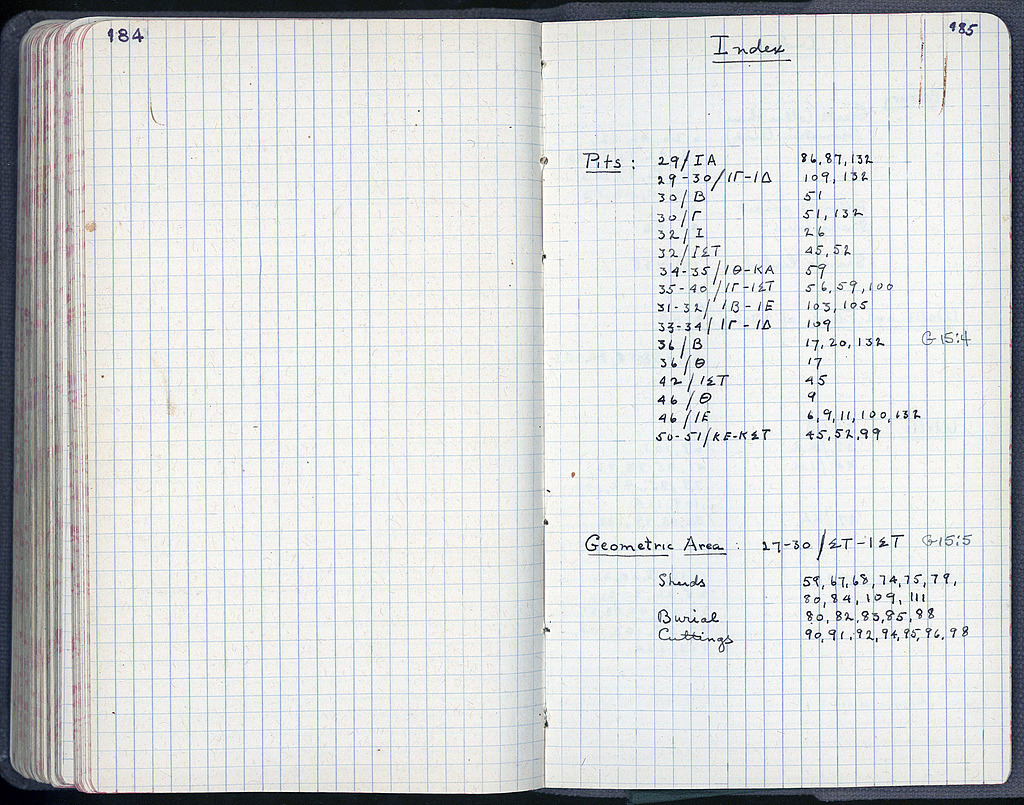 184
185
Index
Pits : 29/ΙΑ 86, 87, 132
29-30/ΙΓ-ΙΔ 109, 132
30/Β 51
30/Γ 51, 132
32/Ι 26
32/ΙΣΤ 45, 52
34-35/ΙΘ-ΚΑ 59
35-40/ΙΓ-ΙΣΤ 56, 59, 100
31-32/ΙΒ-ΙΕ 103, 105
33-34/ΙΓ-ΙΔ 109
36/Β 17, 20, 132 G 15:4
36/Θ 17
42/ΙΣΤ 45
46/Θ 9
46/ΙΕ 6, 9, 11, 100, 132
50-51/ΚΕ-ΚΣΤ 45, 52, 99
Geometric Area : 27-30/ΣΤ-ΙΣΤ G 15:5
Sherds 59, 67, 68, 74, 75, 79,
80, 84, 109, 111
Burial 80, 82, 83, 85, 88
Cuttings 90, 91, 92, 94, 95, 96, 98